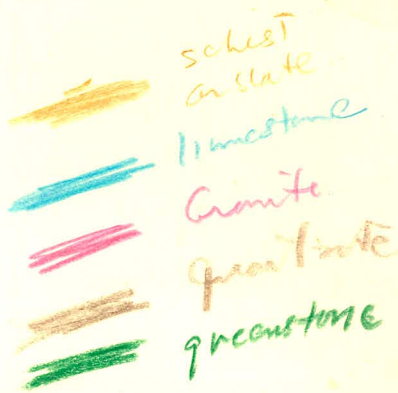 schist
or slate
limestone
Granite
quartzite
greenstone